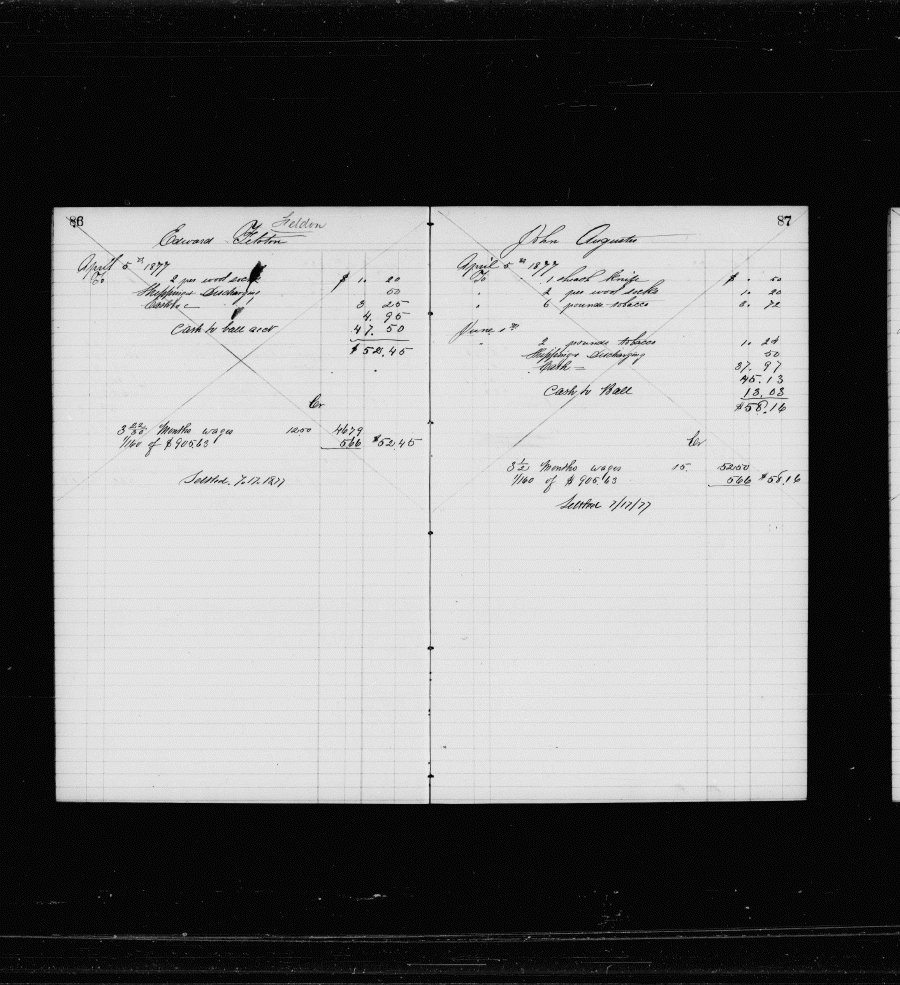 86
Feldon
Edward Felston
April 5th 1877
To 2 per wool socks $ 1. 20
Shipping & Discharging 50
Cash = 3. 25
4. 95
Cash to ball acct 47. 50
$ 52.45
Cr
3 22/30 Months wages 1250 4679
1/160 of $905.63 566 $52.45
Settled. 7.17.1877
87
John Augustus
April 5th 1877
To 1 sheath Knife $ . 50
" 2 per wool socks 1. 20
" 6 pounds tobacco 3. 72
June 1st
" 2 pounds tobacco 1. 24
Shipping & Discharging 50
Cash = 37. 97
45.13
Cash to Ball 13.03
$58.16
Cr
3 1/2 Months wages 15. 5250
1/160 of $905.63 566 $58.16
Settled 7/17/77